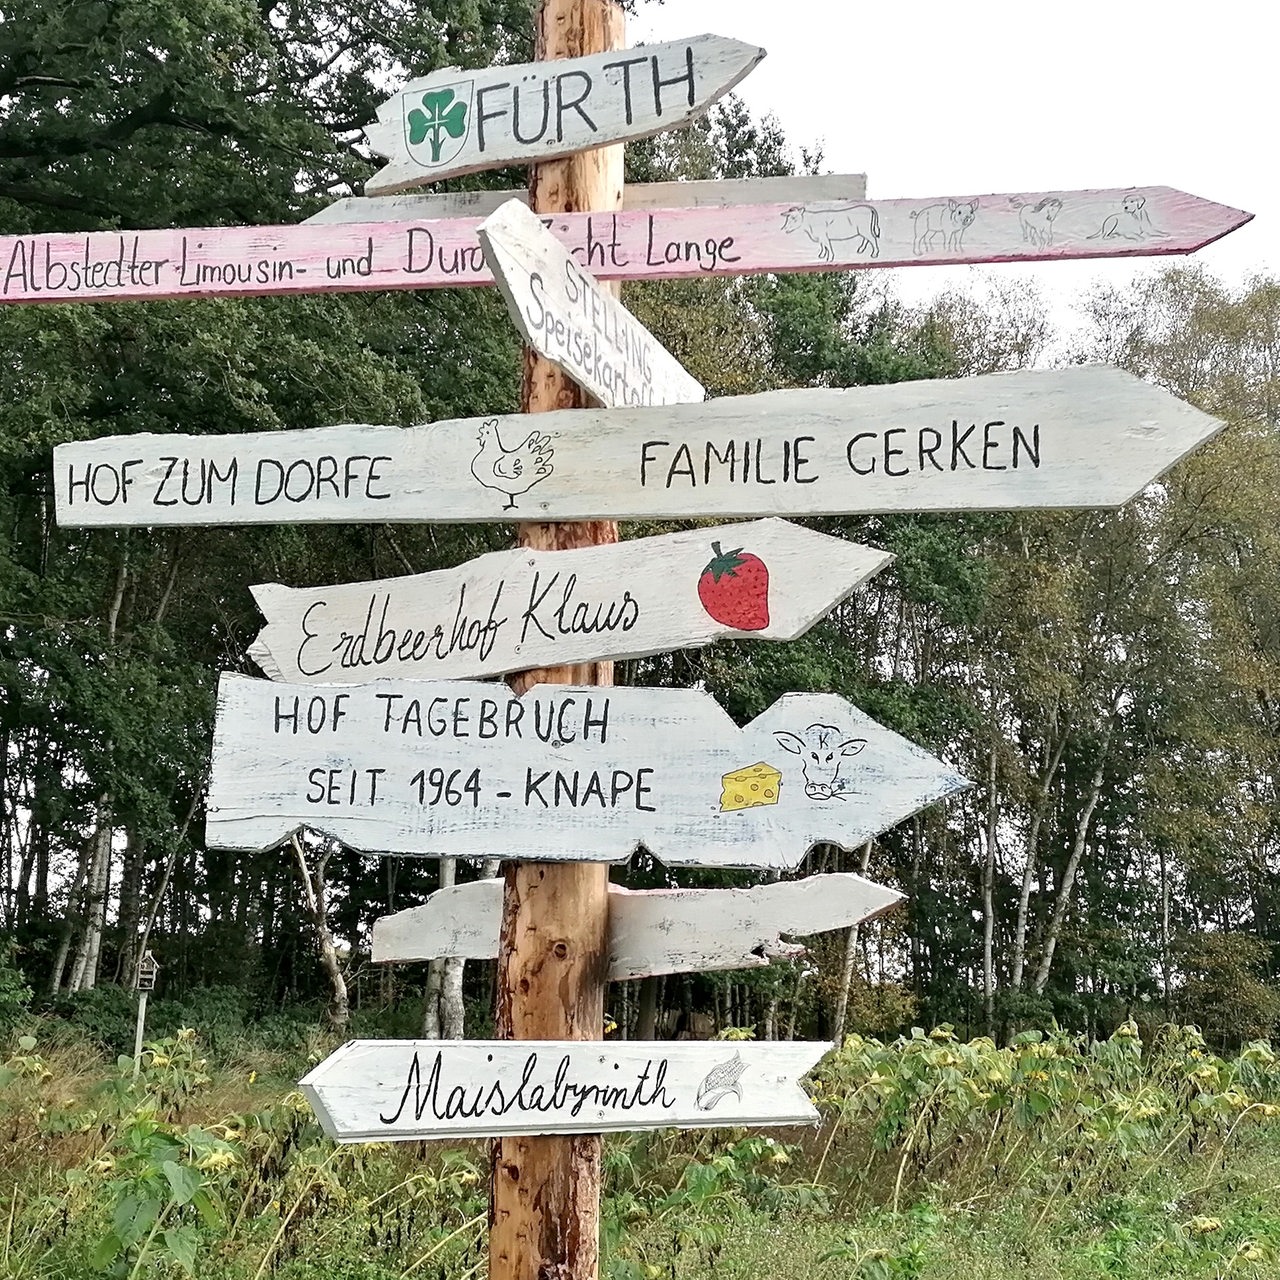 FÜRTH
Albstedter Limousin- und Lange
STELLING
Speisekartoff
HOF ZUM DORFE FAMILIE GERKEN
Erdbeerhof Klaus
HOF TAGEBRUCH
SEIT 1964 - KNAPE
Maislabyrinth